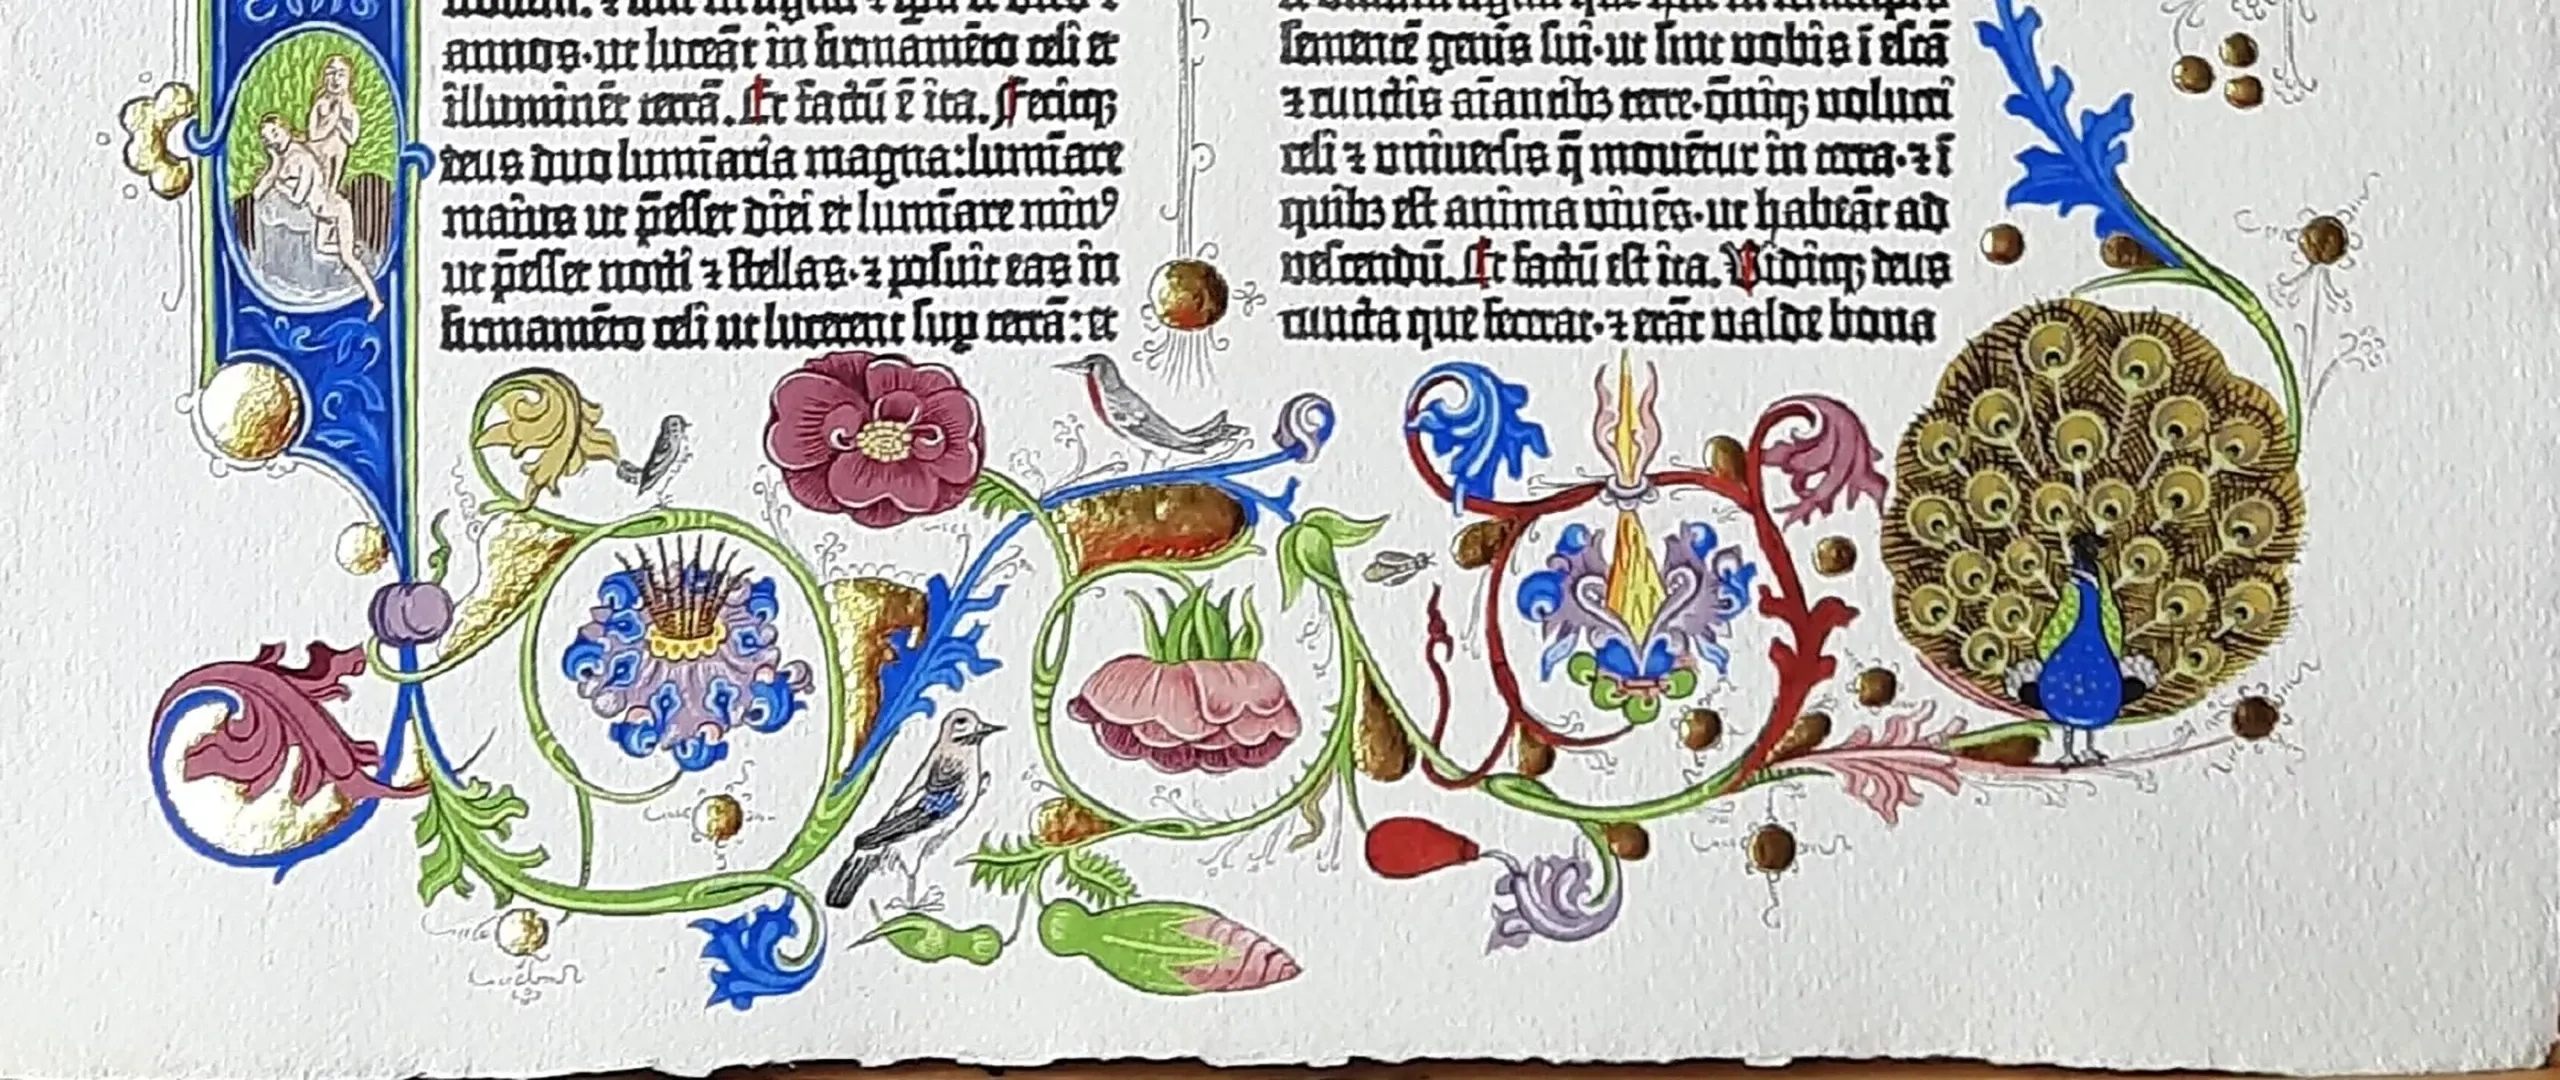 annos·ut luceāt in firmamēto celi et
illuminēt terrā. Et factū ē ita. Fecitqꝫ
deus duo lumīaria magna:lumīare
maius ut p̄esset diei et lumīare minꝰ
ut p̄esset nocti ⁊ stellas·⁊ posuit eas in
firmamēto celi ut lucerent suꝑ terrā: et
sementē gen̄is sui·ut sint vobis ī escā
⁊ cunctis aīantibꝫ terre·ōniqꝫ volucri
celi ⁊ universis q̄ moventur in terra·⁊ ī
quibꝫ est anima vivēs·ut habeāt ad
vescendū. Et factū est ita. Viditqꝫ deus
cuncta que fecerat·⁊ erāt valde bona